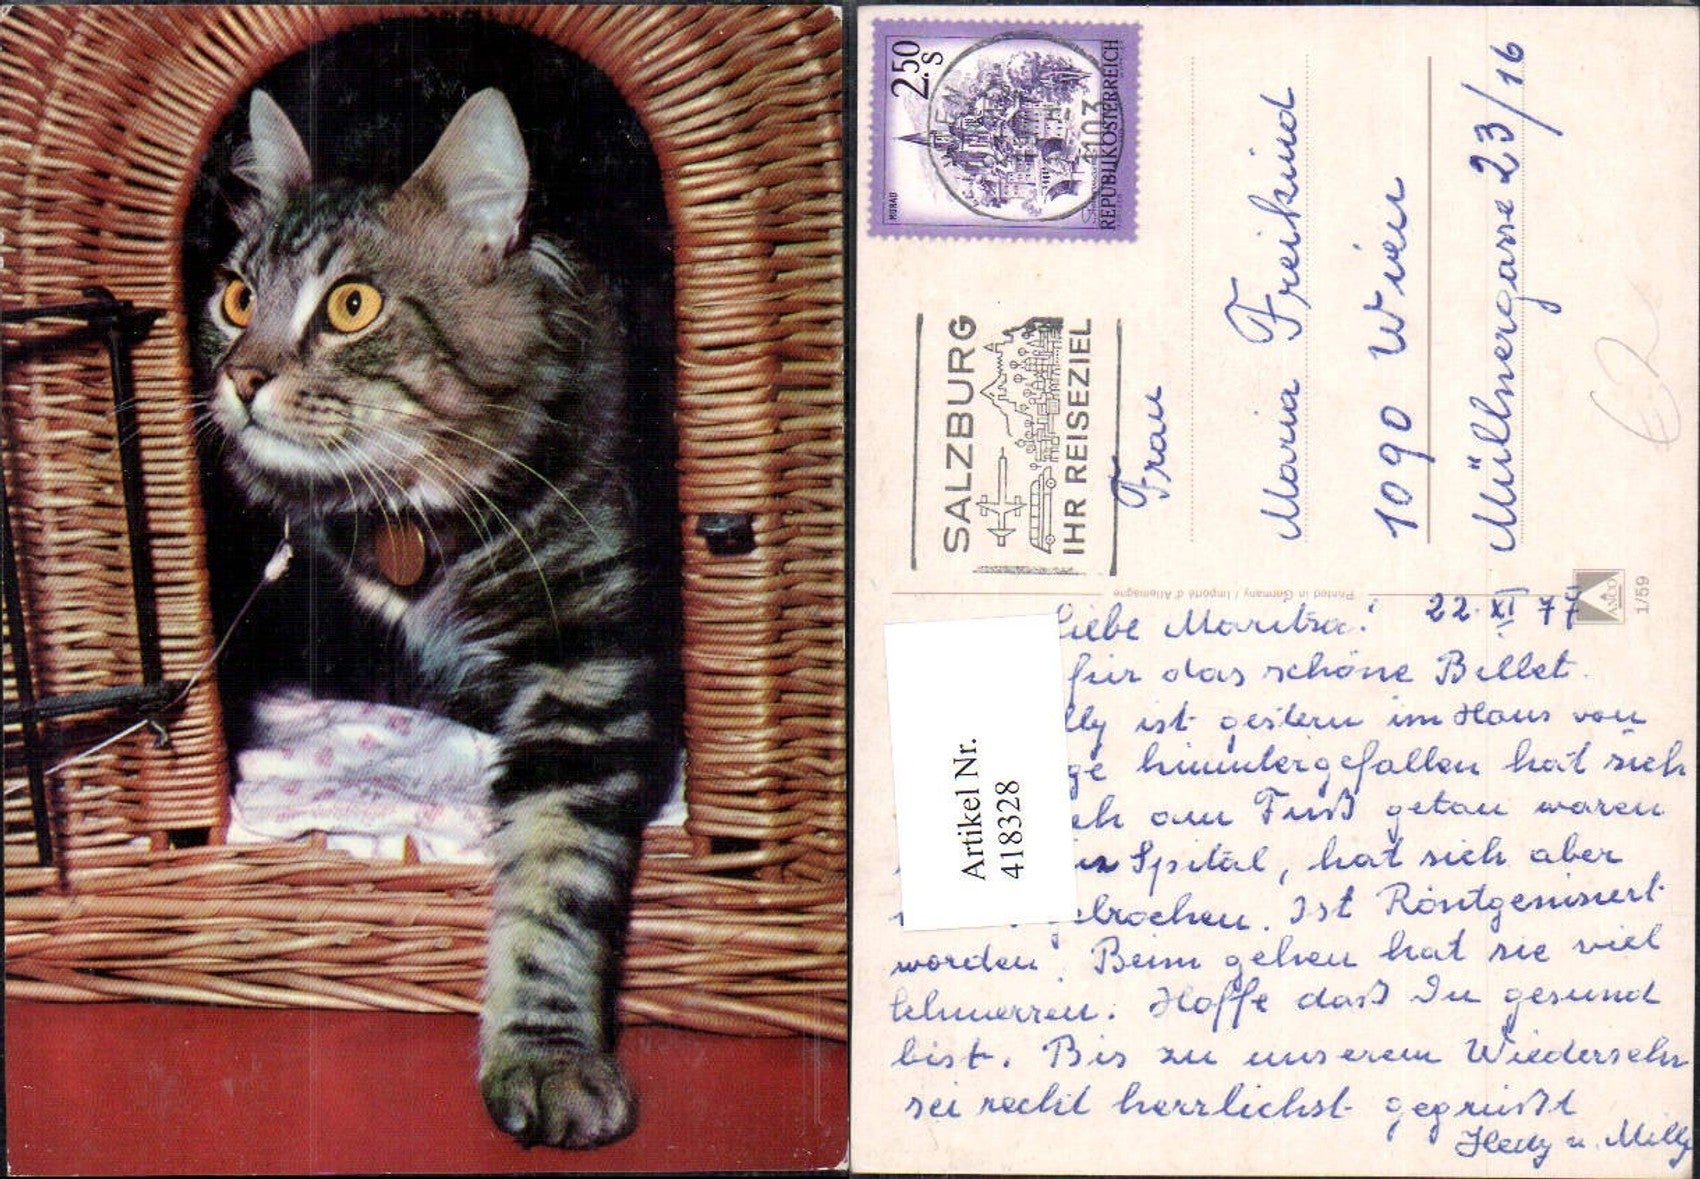 2.50
S
MURAU
REPUBLIK ÖSTERREICH
4103
SALZBURG
IHR REISEZIEL
Frau
Maria Freikind
1090 Wien
Mülhnergasse 23/16
€2
Printed in Germany / Importé d'Allemagne
ANCO
1/59
Artikel Nr.
418328
22. XI 77
Liebe Maritza!
für das schöne Billet.
lly ist gestern im Haus von
ge hinuntergefallen hat sich
eh am Fuß getan waren
Spital, hat sich aber
gebrochen. Ist Röntgenisiert
worden. Beim gehen hat sie viel
Schmerzen. Hoffe daß Du gesund
bist. Bis zu unserem Wiedersehn
sei recht herrlichst gegrüßt
Hedy u. Milly